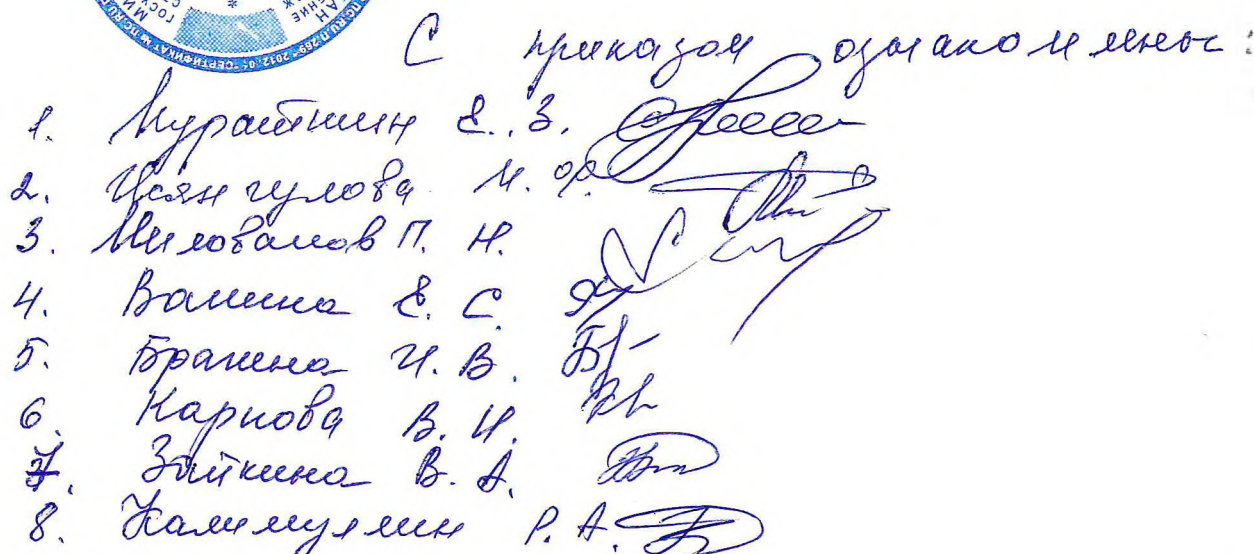 С приказом ознакомлены:
1. Муратшин Е. З.
2. Исянгулова М. Ф.
3. Милованов П. Н.
4. Ванина Е. С.
5. Брагина И. В.
6. Карпова В. И.
7. Зайкина В. А.
8. Халимуллин Р. А.